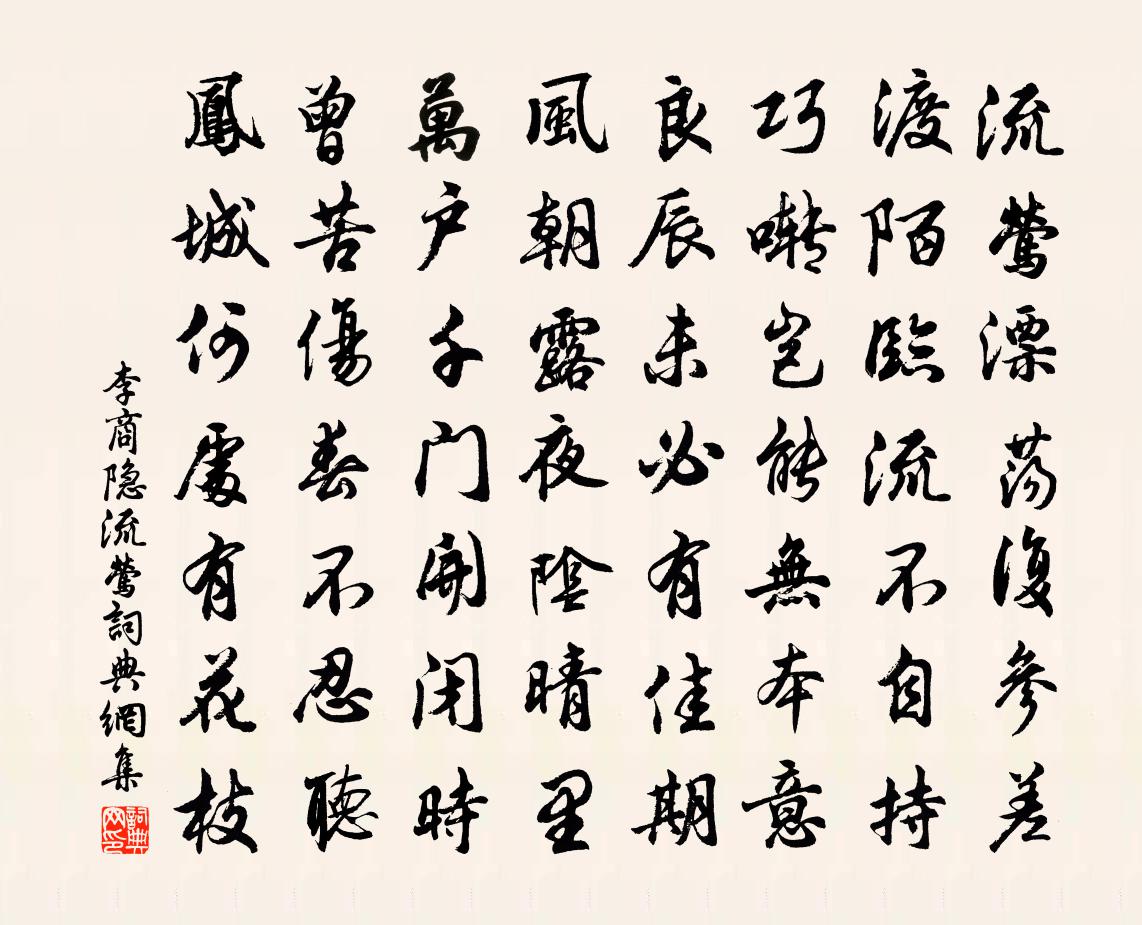 流鶯漂蕩復參差
渡陌臨流不自持
巧囀豈能無本意
良辰未必有佳期
風朝露夜陰晴里
萬户千門開闭時
曾苦傷春不忍聽
鳳城何處有花枝
李商隐流鶯詞典網集
詞典网印